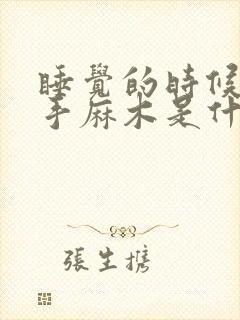 睡覺的時候
手麻木是什
張生携